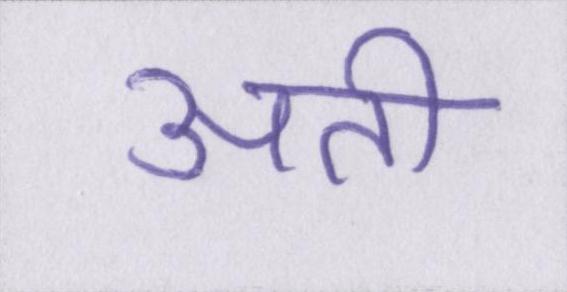 अती